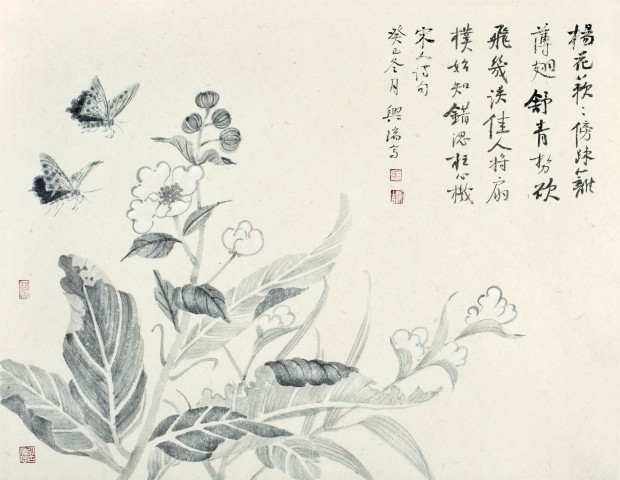 楊花蔌〻傍疎籬
薄翅舒青勢欲
飛幾誤佳人將扇
撲始知錯認枉心機
宋人詩句
癸巳冬月興瑞寫